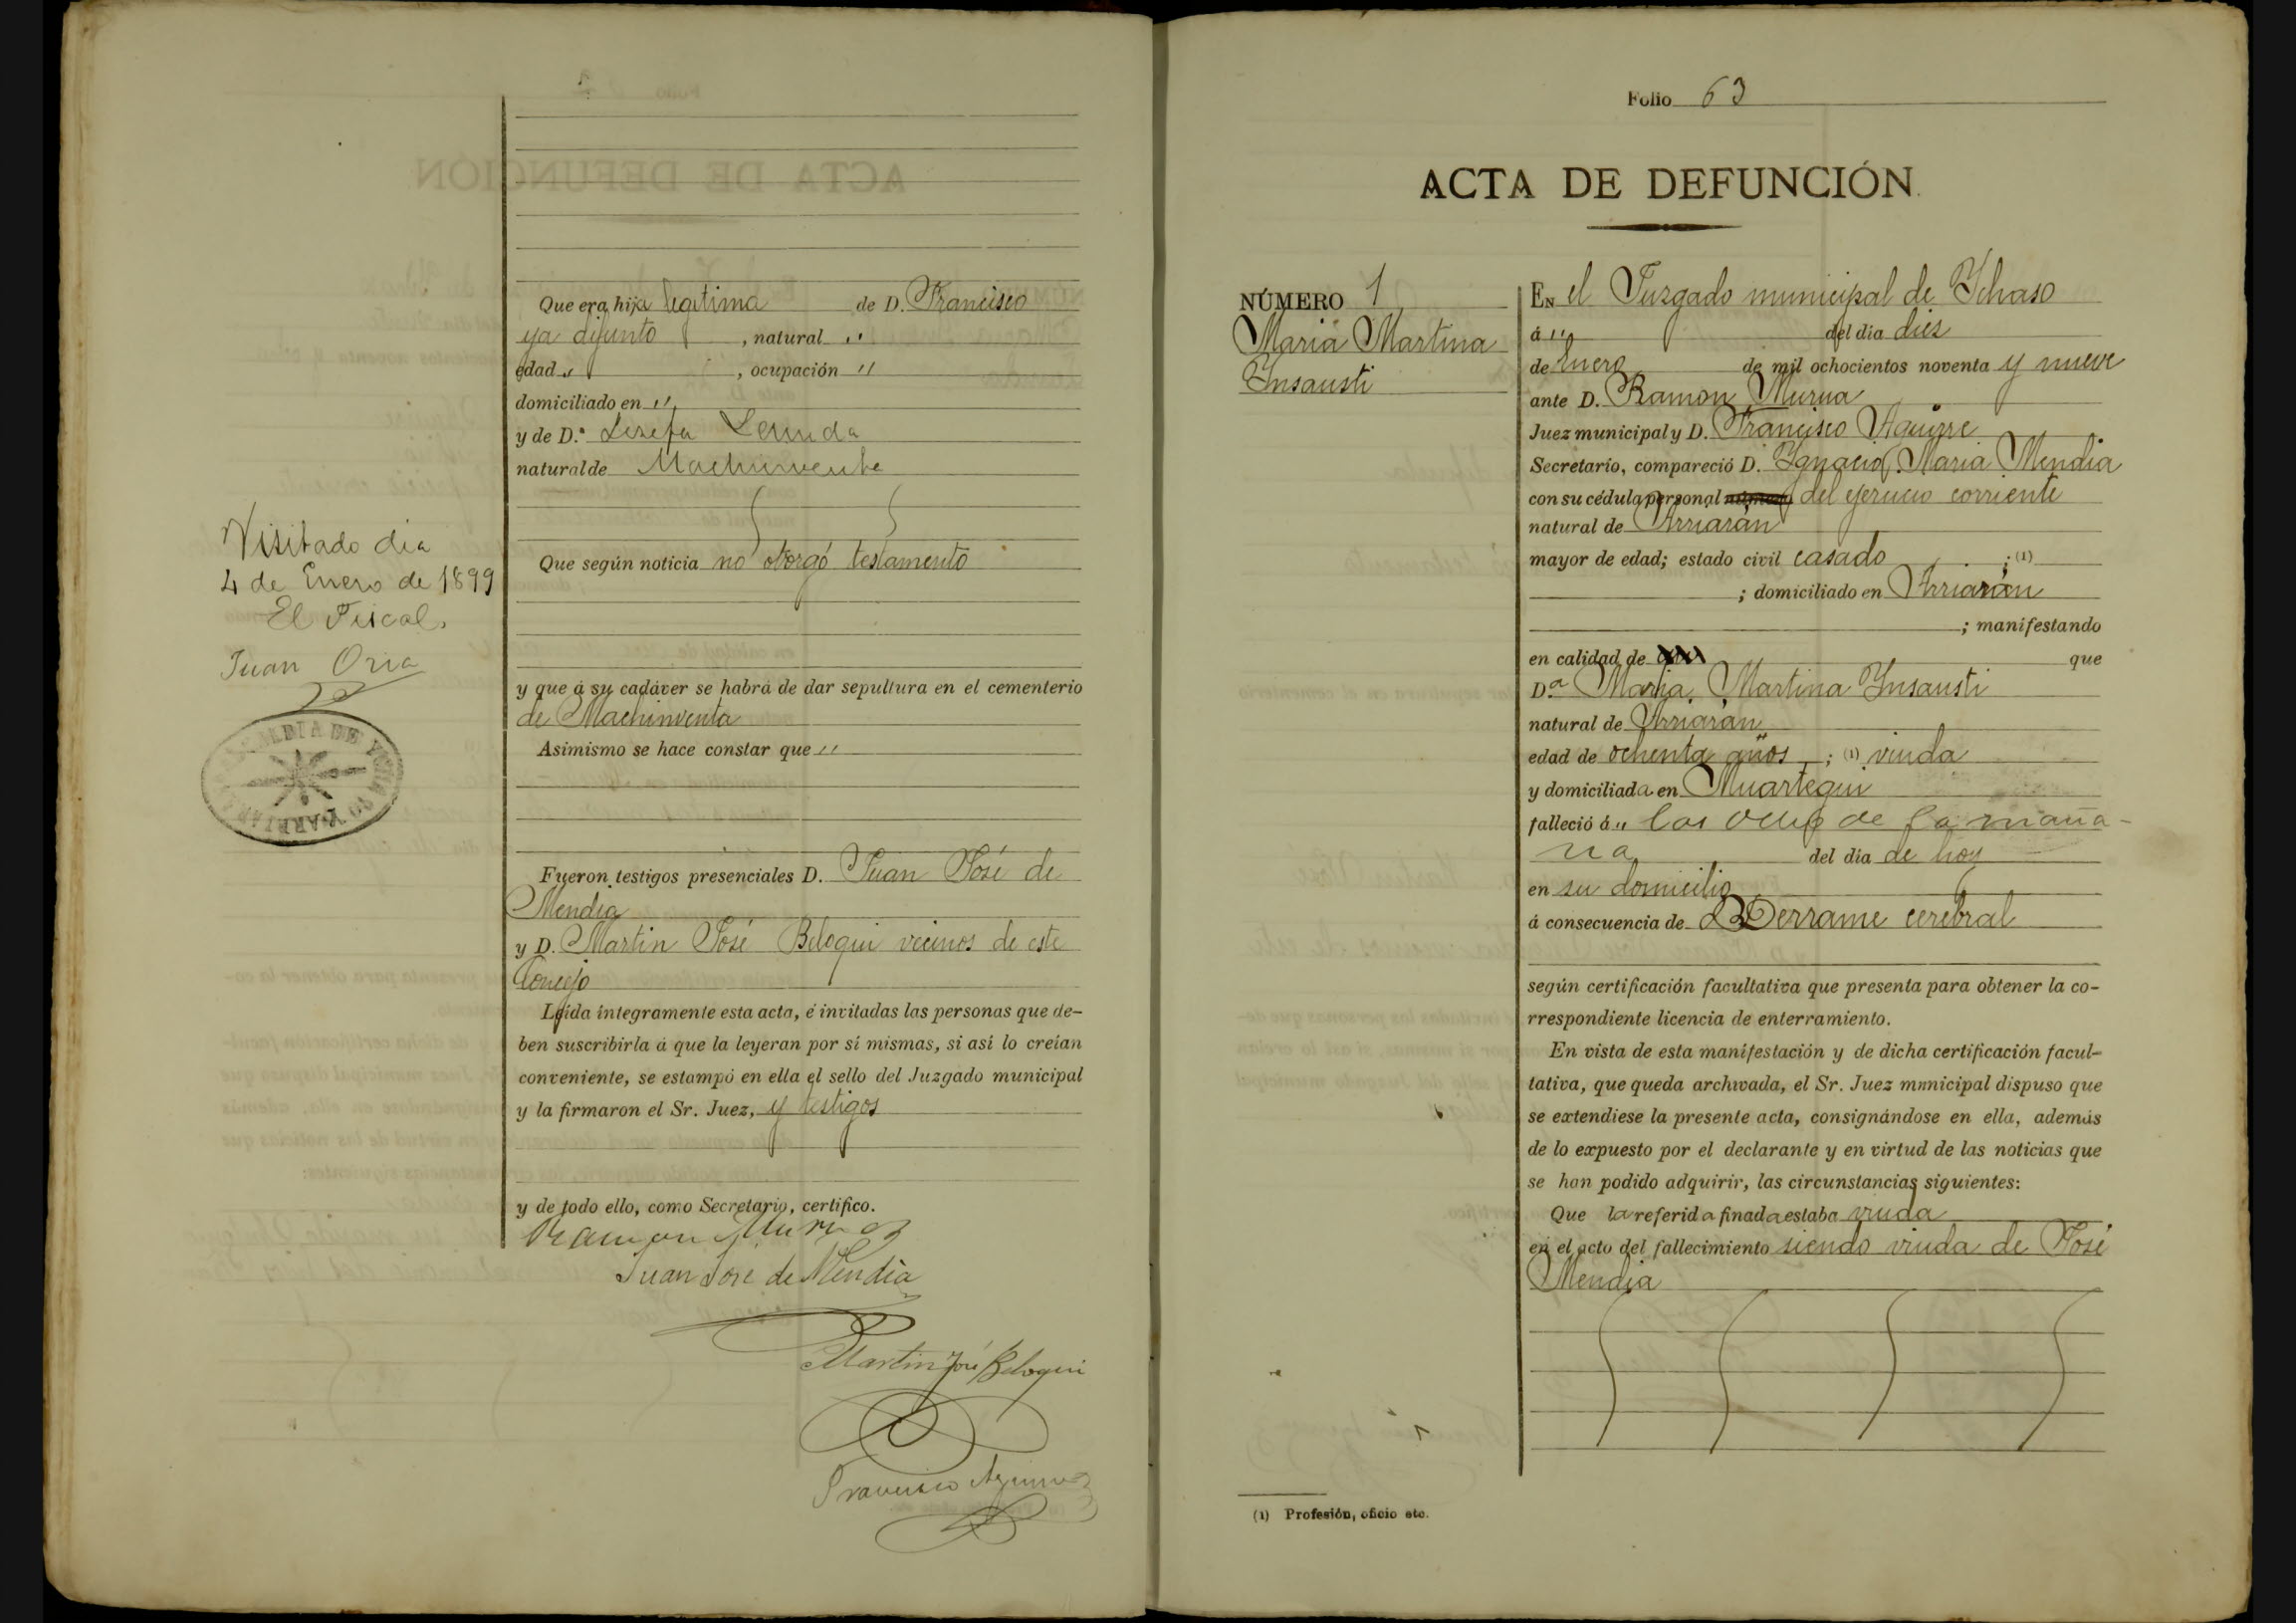 Que era hija legitima de D. Francisco
ya difunto, natural "
edad ", ocupación "
domiciliado en "
y de D.ª Josefa Lerunda
natural de Machinventa
Que según noticia no otorgó testamento
y que á su cadáver se habrá de dar sepultura en el cementerio
de Machinventa
Asimismo se hace constar que "
Fueron testigos presenciales D. Juan José de
Mendia
y D. Martin José Beloqui vecinos de este
Concejo
Leída íntegramente esta acta, é invitadas las personas que de-
ben suscribirla á que la leyeran por sí mismas, si así lo creían
conveniente, se estampó en ella el sello del Juzgado municipal
y la firmaron el Sr. Juez, y testigos
y de todo ello, como Secretario, certifico.
Ramon Murua
Juan José de Mendia
Martin José Beloqui
Francisco Aguirre
Visitado dia
4 de Enero de 1899
El Fiscal.
Juan Oria
ALCALDIA DE YCHASO Y ARRIARAN
Folio 63
ACTA DE DEFUNCIÓN.
NÚMERO 1
Maria Martina
Ynsausti
EN el Juzgado municipal de Ychaso
á " del dia diez
de Enero de mil ochocientos noventa y nueve
ante D. Ramon Murua
Juez municipal y D. Francisco Aguirre
Secretario, compareció D. Ygnacio Maria Mendia
con su cédula personal del ejercicio corriente
natural de Arriarán
mayor de edad; estado civil casado ; (1)
; domiciliado en Arriarán
; manifestando
en calidad de que
D.ª Maria Martina Ynsausti
natural de Arriarán
edad de ochenta años ; (1) viuda
y domiciliada en Muartegui
falleció á " las ocho de la maña-
na del dia de hoy
en su domicilio
á consecuencia de Derrame cerebral
según certificación facultativa que presenta para obtener la co-
rrespondiente licencia de enterramiento.
En vista de esta manifestación y de dicha certificación facul-
tativa, que queda archivada, el Sr. Juez municipal dispuso que
se extendiese la presente acta, consignándose en ella, además
de lo expuesto por el declarante y en virtud de las noticias que
se han podido adquirir, las circunstancias siguientes:
Que la referida finada estaba viuda
en el acto del fallecimiento siendo viuda de José
Mendia
(1) Profesión, oficio etc.